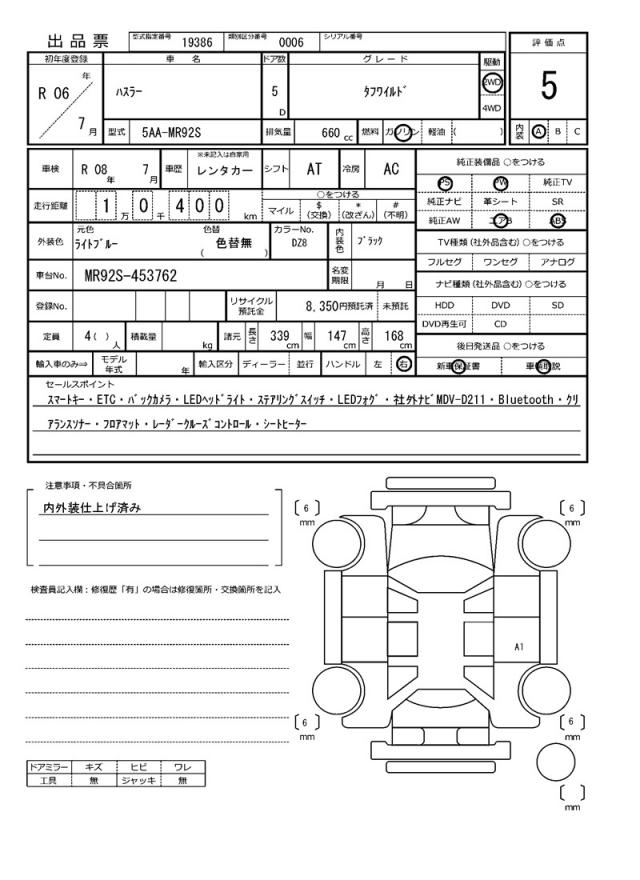 出品票 型式指定番号 19386 類別区分番号 0006 シリアル番号
評価点
5
内装 A B C
初年度登録 車名 ドア数 グレード 駆動
R 06 年 7月 ハスラー 5 D タフワイルド 2WD 4WD
型式 5AA-MR92S 排気量 660 cc 燃料 ガソリン 軽油 ( )
車検 R 08 年 7 月 車歴 ※未記入は自家用 レンタカー シフト AT 冷房 AC
純正装備品 ○をつける
PS PW 純正TV
純正ナビ 革シート SR
純正AW エアB ABS
走行距離 1 万 0 千 4 0 0 km
○をつける
マイル $ (交換) * (改ざん) # (不明)
外装色 元色 ライトブルー 色替 色替無 ( ) カラーNo. DZ8 内装色 ブラック
TV種類 (社外品含む) ○をつける
フルセグ ワンセグ アナログ
車台No. MR92S-453762 名変期限 月 日
ナビ種類 (社外品含む) ○をつける
HDD DVD SD
DVD再生可 CD
登録No. リサイクル預託金 8,350円預託済 未預託
定員 4( ) 人 積載量 kg 諸元 長さ 339 cm 幅 147 cm 高さ 168 cm
後日発送品 ○をつける
新車保証書 車輌取説
輸入車のみ⇒ モデル年式 年 輸入区分 ディーラー 並行 ハンドル 左 右
セールスポイント
スマートキー・ETC・バックカメラ・LEDヘッドライト・ステアリングスイッチ・LEDフォグ・社外ナビMDV-D211・Bluetooth・クリ
アランスソナー・フロアマット・レーダークルーズコントロール・シートヒーター
注意事項・不具合箇所
内外装仕上げ済み
検査員記入欄:修復歴「有」の場合は修復箇所・交換箇所を記入
[ 6 ] mm
[ 6 ] mm
A1
[ 6 ] mm
[ 6 ] mm
[ ] mm
ドアミラー キズ ヒビ ワレ
工具 無 ジャッキ 無